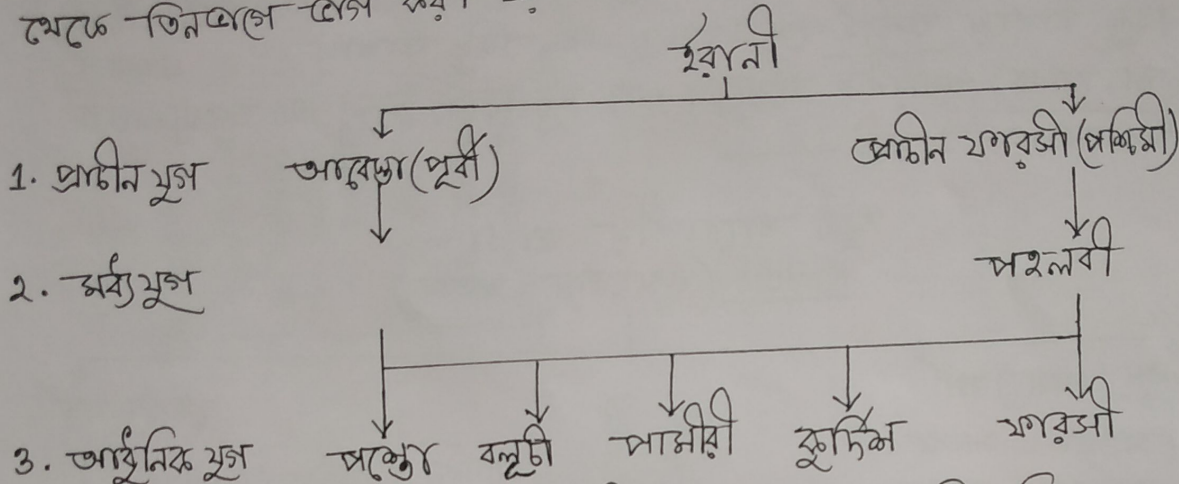 থেকে তিনভাগে ভাগ করা
ইরানী
1. প্রাচীন যুগ আবেস্তা (পূর্বী) প্রাচীন ফারসী (পশ্চিমী)
২. মধ্য যুগ পহলবী
3. আধুনিক যুগ পশ্তো বলূচী পামীরী কুর্দিশ ফারসী